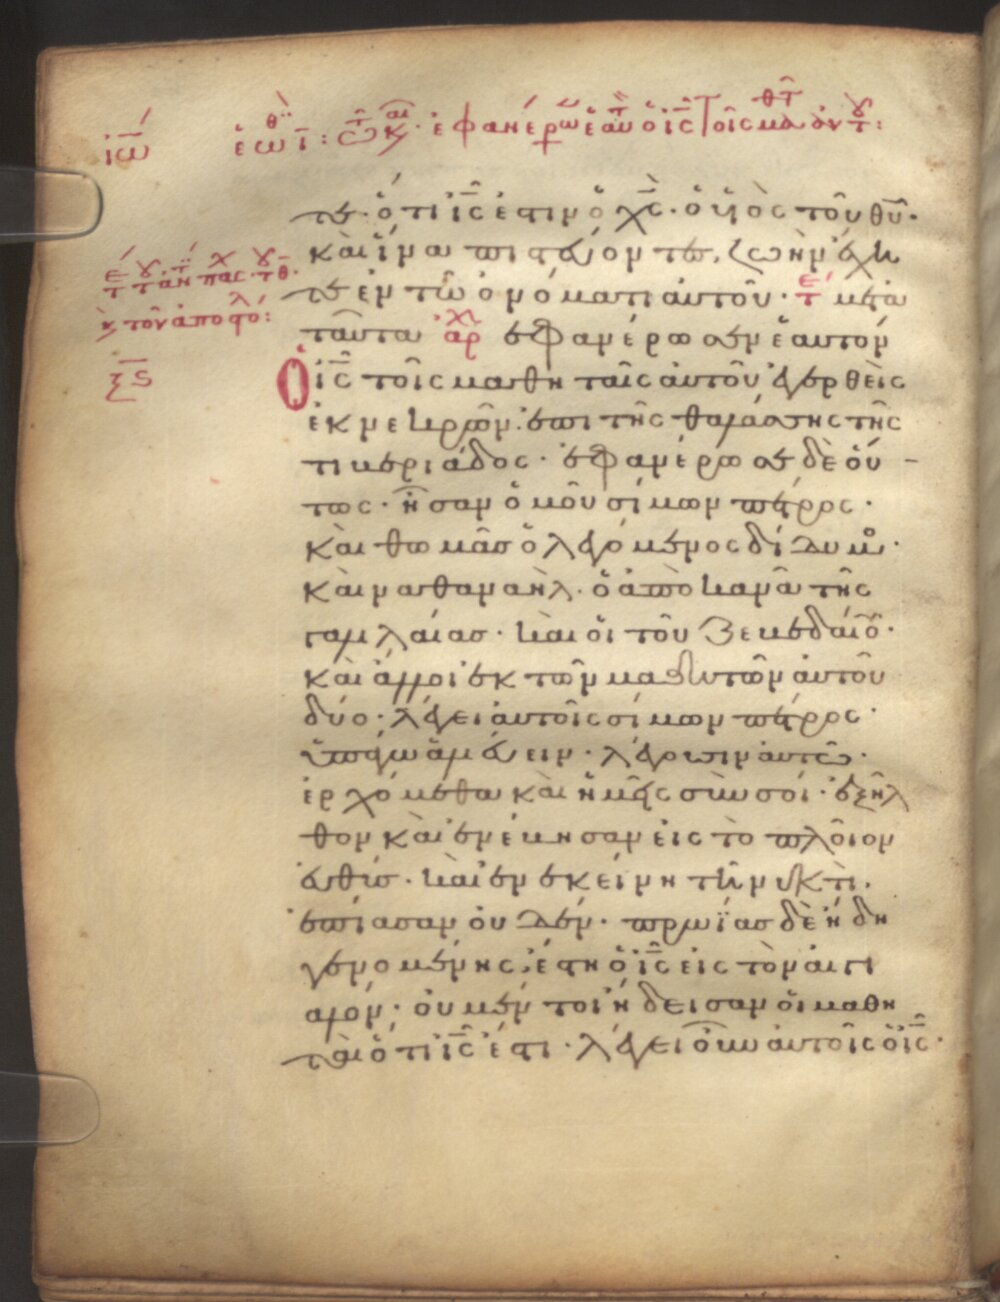 ἰω
ἑωθ ι : τω και· ἐφανέρω ἑαυτ ὁ ις τοις μαθητ αυτου :
τε· ὅτι ις ἐστιν ὁ χς· ὁ υἱὸς τοῦ θυ·
καὶ ἵνα πιστεύοντες, ζωὴν ἔχη
τε ἐν τῶ ὀνόματι αὐτοῦ· τε μετὰ
ταῦτα αρχ ἐφανέρωσεν ἑαυτὸν
τῆ
κ τὸν ἀποστόλ :
ξς
Ὁ ις τοῖς μαθηταῖς αὐτοῦ ἐγερθεὶς
ἐκ νεκρῶν· ἐπὶ τῆς θαλάσσης τῆς
τιβεριάδος· ἐφανέρωσε δὲ οὕ
τως· ἦσαν ὁμοῦ σίμων πέτρος·
καὶ θωμᾶς ὁ λεγόμενος δίδυμος·
καὶ ναθαναὴλ· ὁ ἀπὸ κανᾶ τῆς
γαλιλαίας· καὶ οἱ τοῦ ζεβεδαίου·
καὶ ἄλλοι ἐκ τῶν μαθητῶν αὐτοῦ
δύο· λέγει αὐτοῖς σίμων πέτρος·
ὑπάγω ἁλιεύειν· λέγουσιν αὐτῶ·
ἐρχόμεθα καὶ ἡμεῖς σὺν σοί· ἐξῆλ
θον καὶ ἐνέβησαν εἰς τὸ πλοῖον
εὐθύς· καὶ ἐν ἐκείνη τῆ νυκτὶ·
ἐπίασαν οὐδέν· πρωΐας δὲ ἤδη
γενομένης· ἔστη ὁ ις εἰς τὸν αἰγι
αλόν· οὐ μέντοι ἤδεισαν οἱ μαθη
ταὶ ὅτι ις ἐστι· λέγει οὖν αὐτοῖς ὁ ις·